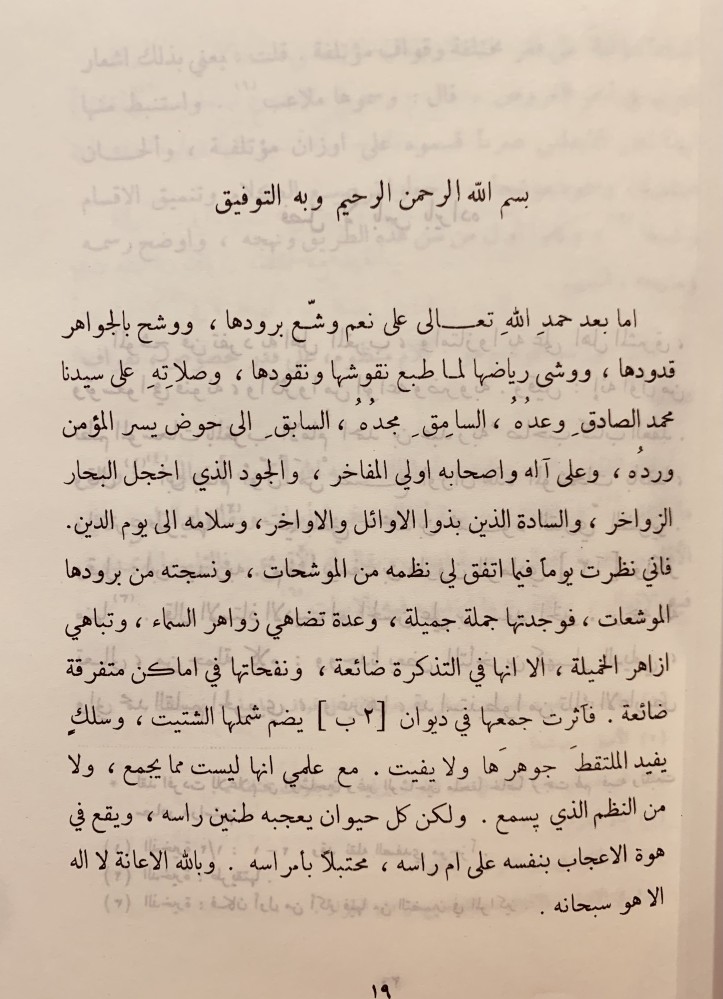 بسم الله الرحمن الرحيم وبه التوفيق
اما بعد حمدِ اللهِ تعـــالى على نعم وشّع برودها ، ووشح بالجواهر
قدودها ، ووشى رياضها لما طبع نقوشها ونقودها ، وصلاتِهِ على سيدنا
محمد الصادقِ وعدُهُ ، السامِقِ مجدُهُ ، السابقِ الى حوض يسر المؤمن
وردُه ، وعلى آله واصحابه اولي المفاخر ، والجود الذي اخجل البحار
الزواخر ، والسادة الذين بذوا الاوائل والاواخر ، وسلامه الى يوم الدين.
فاني نظرت يوماً فيما اتفق لي نظمه من الموشحات ، ونسجته من برودها
الموشعات ، فوجدتها جملة جميلة ، وعدة تضاهي زواهر السماء ، وتباهي
ازاهر الخميلة ، الا انها في التذكرة ضائعة ، ونفحاتها في اماكن متفرقة
ضائعة . فآثرت جمعها في ديوان [ ٢ ب ] يضم شملها الشتيت ، وسلكٍ
يفيد الملتقطَ جوهرَها ولا يفيت . مع علمي انها ليست مما يجمع ، ولا
من النظم الذي يسمع . ولكن كل حيوان يعجبه طنين راسه ، ويقع في
هوة الاعجاب بنفسه على ام راسه ، محتبلاً بأمراسه . وبالله الاعانة لا اله
الا هو سبحانه .
١٩